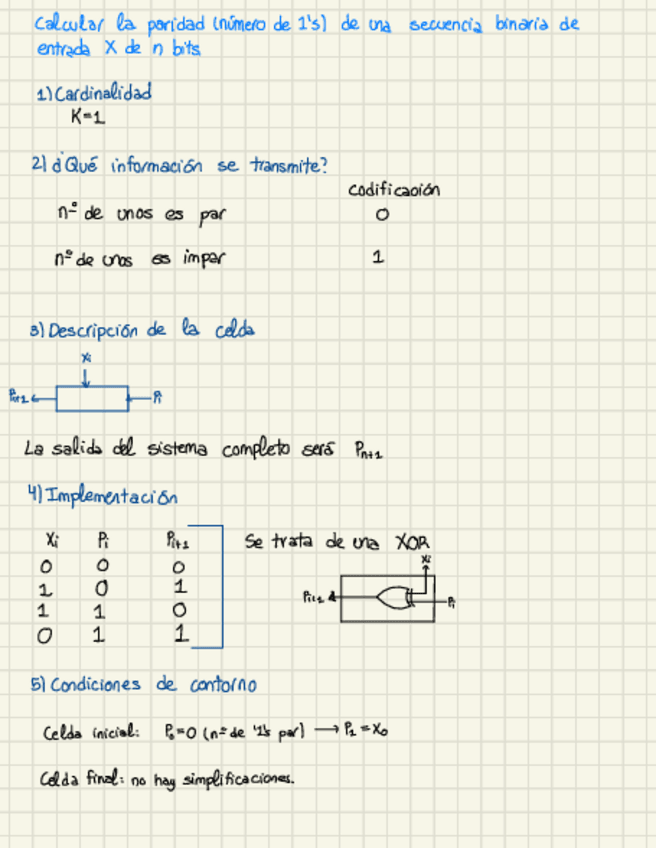 Calcular la paridad (número de 1's) de una secuencia binaria de
entrada X de n bits
1) Cardinalidad
K=1
2) ¿Qué información se transmite?
codificación
nº de unos es par 0
nº de unos es impar 1
3) Descripción de la celda
Xi
Pi+1 Pi
La salida del sistema completo será Pn+1
4) Implementación
Xi Pi Pi+1 Se trata de una XOR
0 0 0
1 0 1
1 1 0
0 1 1
Xi
Pi+1 Pi
5) Condiciones de contorno
Celda inicial: P0=0 (nº de '1's par) → P1=X0
Celda final: no hay simplificaciones.